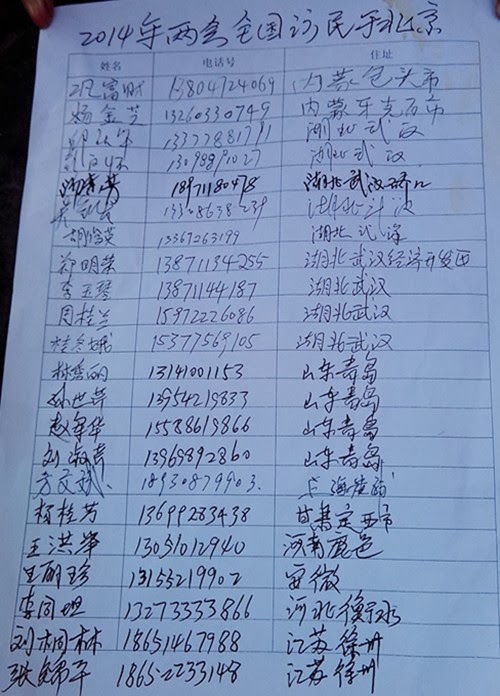 2014年两会全国访民于北京
姓名 电话号 住址
富财 13804724069 内蒙包头市
杨金芝 13260330749 内蒙牙克石市
13377881791 湖北武汉
13098891027 湖北武汉
18971180478 湖北武汉
13308638239 湖北武汉
15367263199 湖北武汉
郑明荣 13871134255 湖北武汉经济开发区
李玉琴 13871144187 湖北武汉
周桂兰 15972226086 湖北武汉
桂冬娥 15377569105 湖北武汉
林秀丽 13141001153 山东青岛
孙世华 13954219833 山东青岛
赵春华 15588619866 山东青岛
刘淑芹 13969892860 山东青岛
方文斌. 18930879903. 上海
杨桂芳 13699283438 甘肃定西市
王洪华 13051012940 河南鹿邑
王丽珍 13155219902 安徽
李同旭 13273333866 河北衡水
刘桐林 18651467988 江苏徐州
张锦平 18652233148 江苏徐州